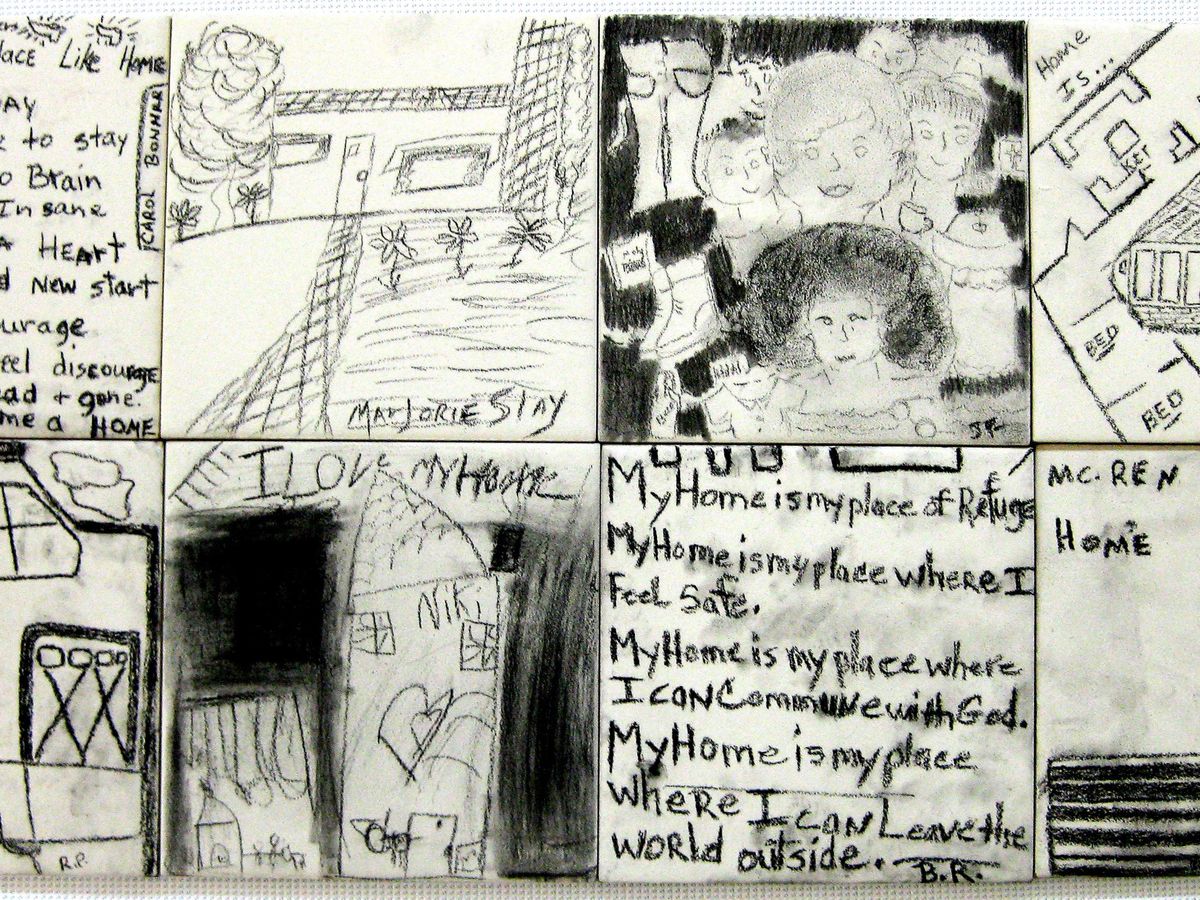 lace Like Home
AY
to stay
o Brain
Insane
A HEART
d New start
ourage
eel discourage
ead + gone.
me a HOME
CAROL BONNER
MARJORIE STAY
SR
Home
Is...
BED
BED
R.R.
I LOVE MY HOME
Niki
My Home is my place of Refuge
My Home is my place where I
Feel Safe.
My Home is my place where
I can Commune with God.
My Home is my place
where I can Leave the
world outside.
B.R.
MC. REN
HOME